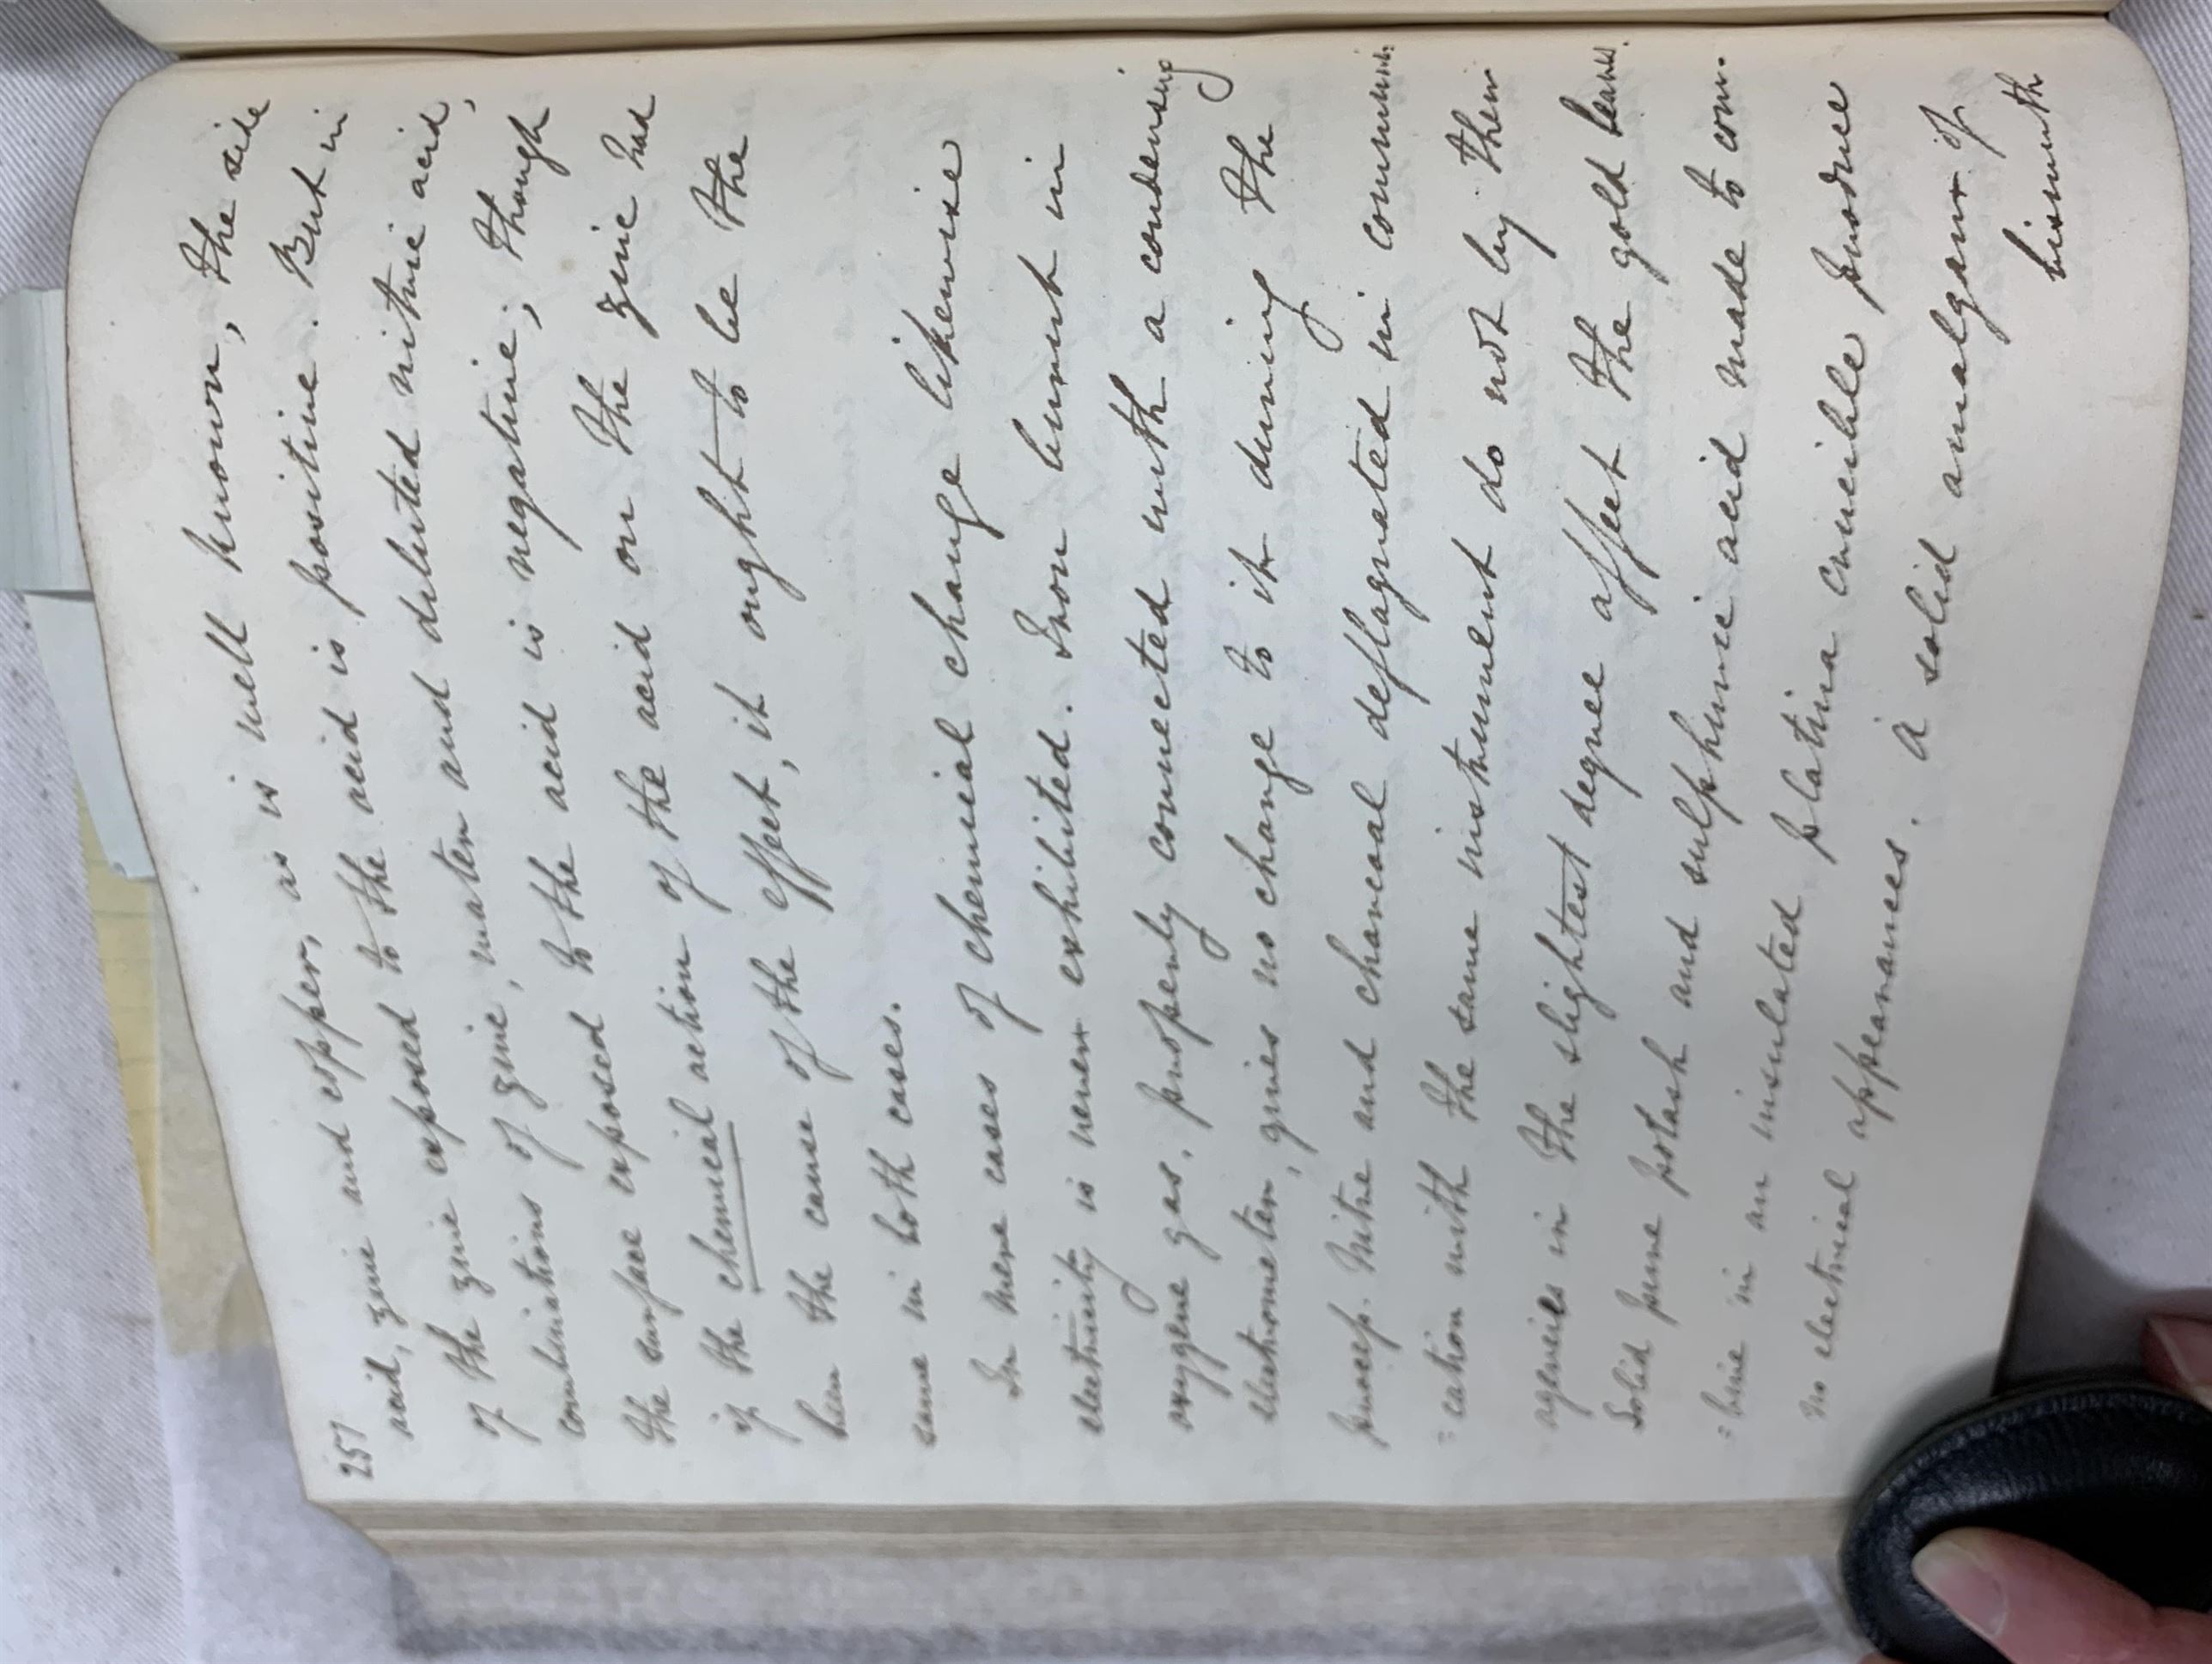 257
acid, zinc and copper, as is well known, the side
of the zinc exposed to the acid is positive. But in
combinations of zinc, water and diluted nitric acid,
the surface exposed to the acid is negative; though
if the chemical action of the acid on the zinc had
been the cause of the effect, it ought to be the
same in both cases.
In mere cases of chemical change likewise
electricity is never exhibited. Iron burnt in
oxygene gas, properly connected with a condensing
electrometer, gives no change to it during the
process. Nitre and charcoal deflagrated in communi:
:cation with the same instrument do not by their
agencies in the slightest degree affect the gold leaves.
Solid pure potash and sulphuric acid made to com-
:bine in an insulated platina crucible produce
no electrical appearances. A solid amalgam of
bismuth